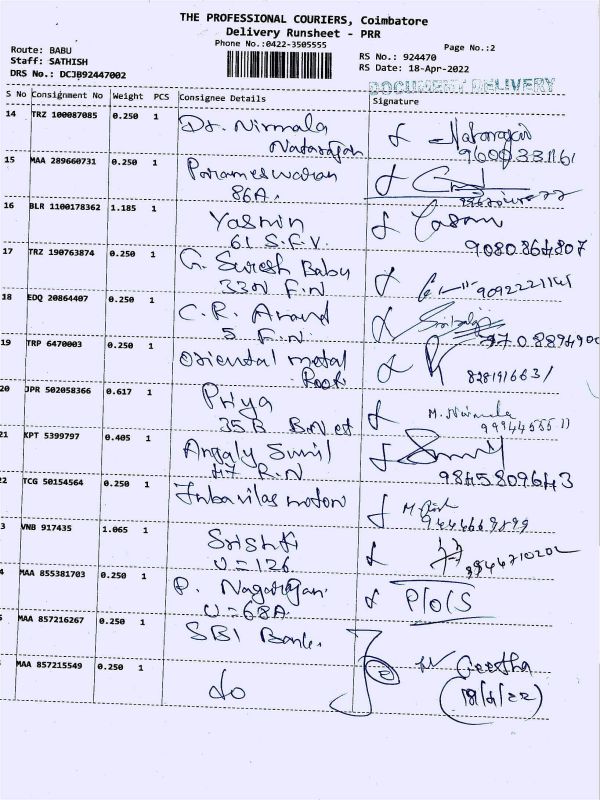 THE PROFESSIONAL COURIERS, Coimbatore
Delivery Runsheet - PRR
Phone No.:0422-3505555
Page No.:2
Route: BABU
Staff: SATHISH
DRS No.: DCJB92447002
RS No.: 924470
RS Date: 18-Apr-2022
DOCUMENT DELIVERY
S No Consignment No Weight PCS Consignee Details Signature
14 TRZ 100087085 0.250 1 Dr. Nirmala Natarajan
15 MAA 289660731 0.250 1 Parameswaran
86A.
16 BLR 1100178362 1.185 1 Yasmin
61 S.F.V.
9080864807
17 TRZ 190763874 0.250 1 G. Suresh Babu
33N F.N
9092221141
18 EDQ 20864407 0.250 1 C.R. Anand
5 F.N.
19 TRP 6470003 0.250 1 Oriental metal
828191663/
20 JPR 502058366 0.617 1 Priya
35B
M. Nirmala
21 KPT 5399797 0.405 1 Angaly Sunil
47 R.N
9845809643
2 TCG 50154564 0.250 1 Inbavilas motors
3 VNB 917435 1.065 1 Srishti
U=126.
4 MAA 855381703 0.250 1 P. Nagarajan
U=68A
P/o/S
MAA 857216267 0.250 1 SBI Bank.
MAA 857215549 0.250 1 do
Geetha
(18/4/22)